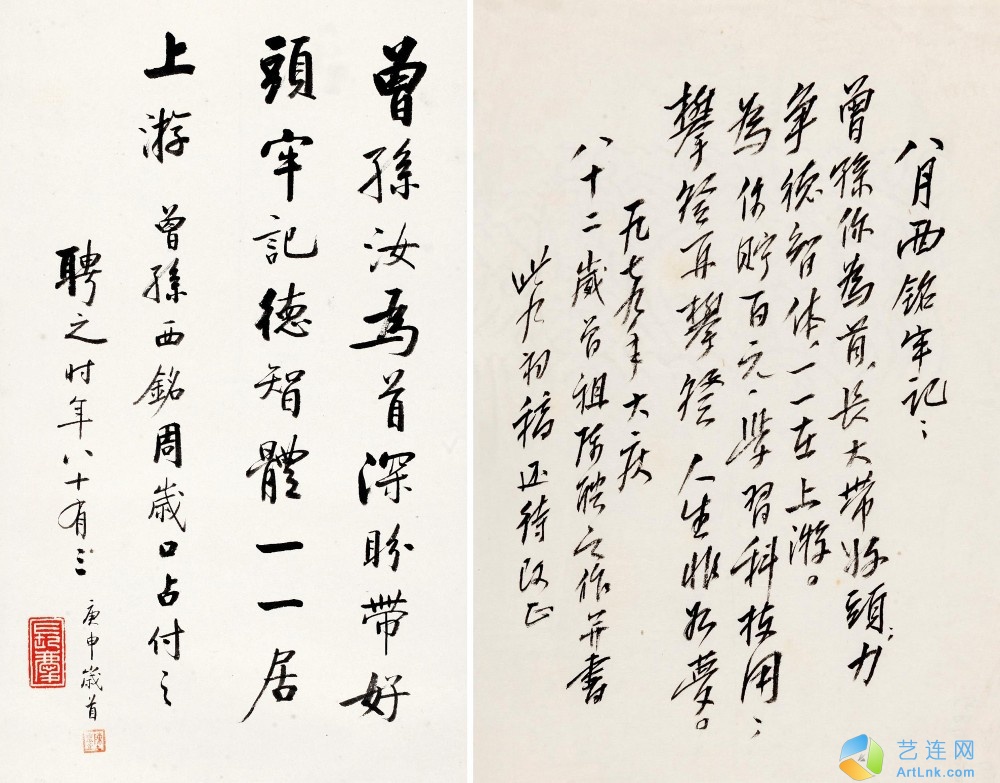 曾孫汝爲首深盼帶好
頭牢記德智體一一居
上游 曾孫西銘周歲口占付之
聘之时年八十有三 庚申歲首
八月西銘牢记：
曾孫你為首，長大带好頭；力
争德智体，一一在上游。
為你貯百元，学習科技用；
攀登再攀登 人生非如夢。
一九七九年大庆
八十二歲曾祖陈聘之作并書
此乃初稿还待改正
艺连网
ArtLnk.com